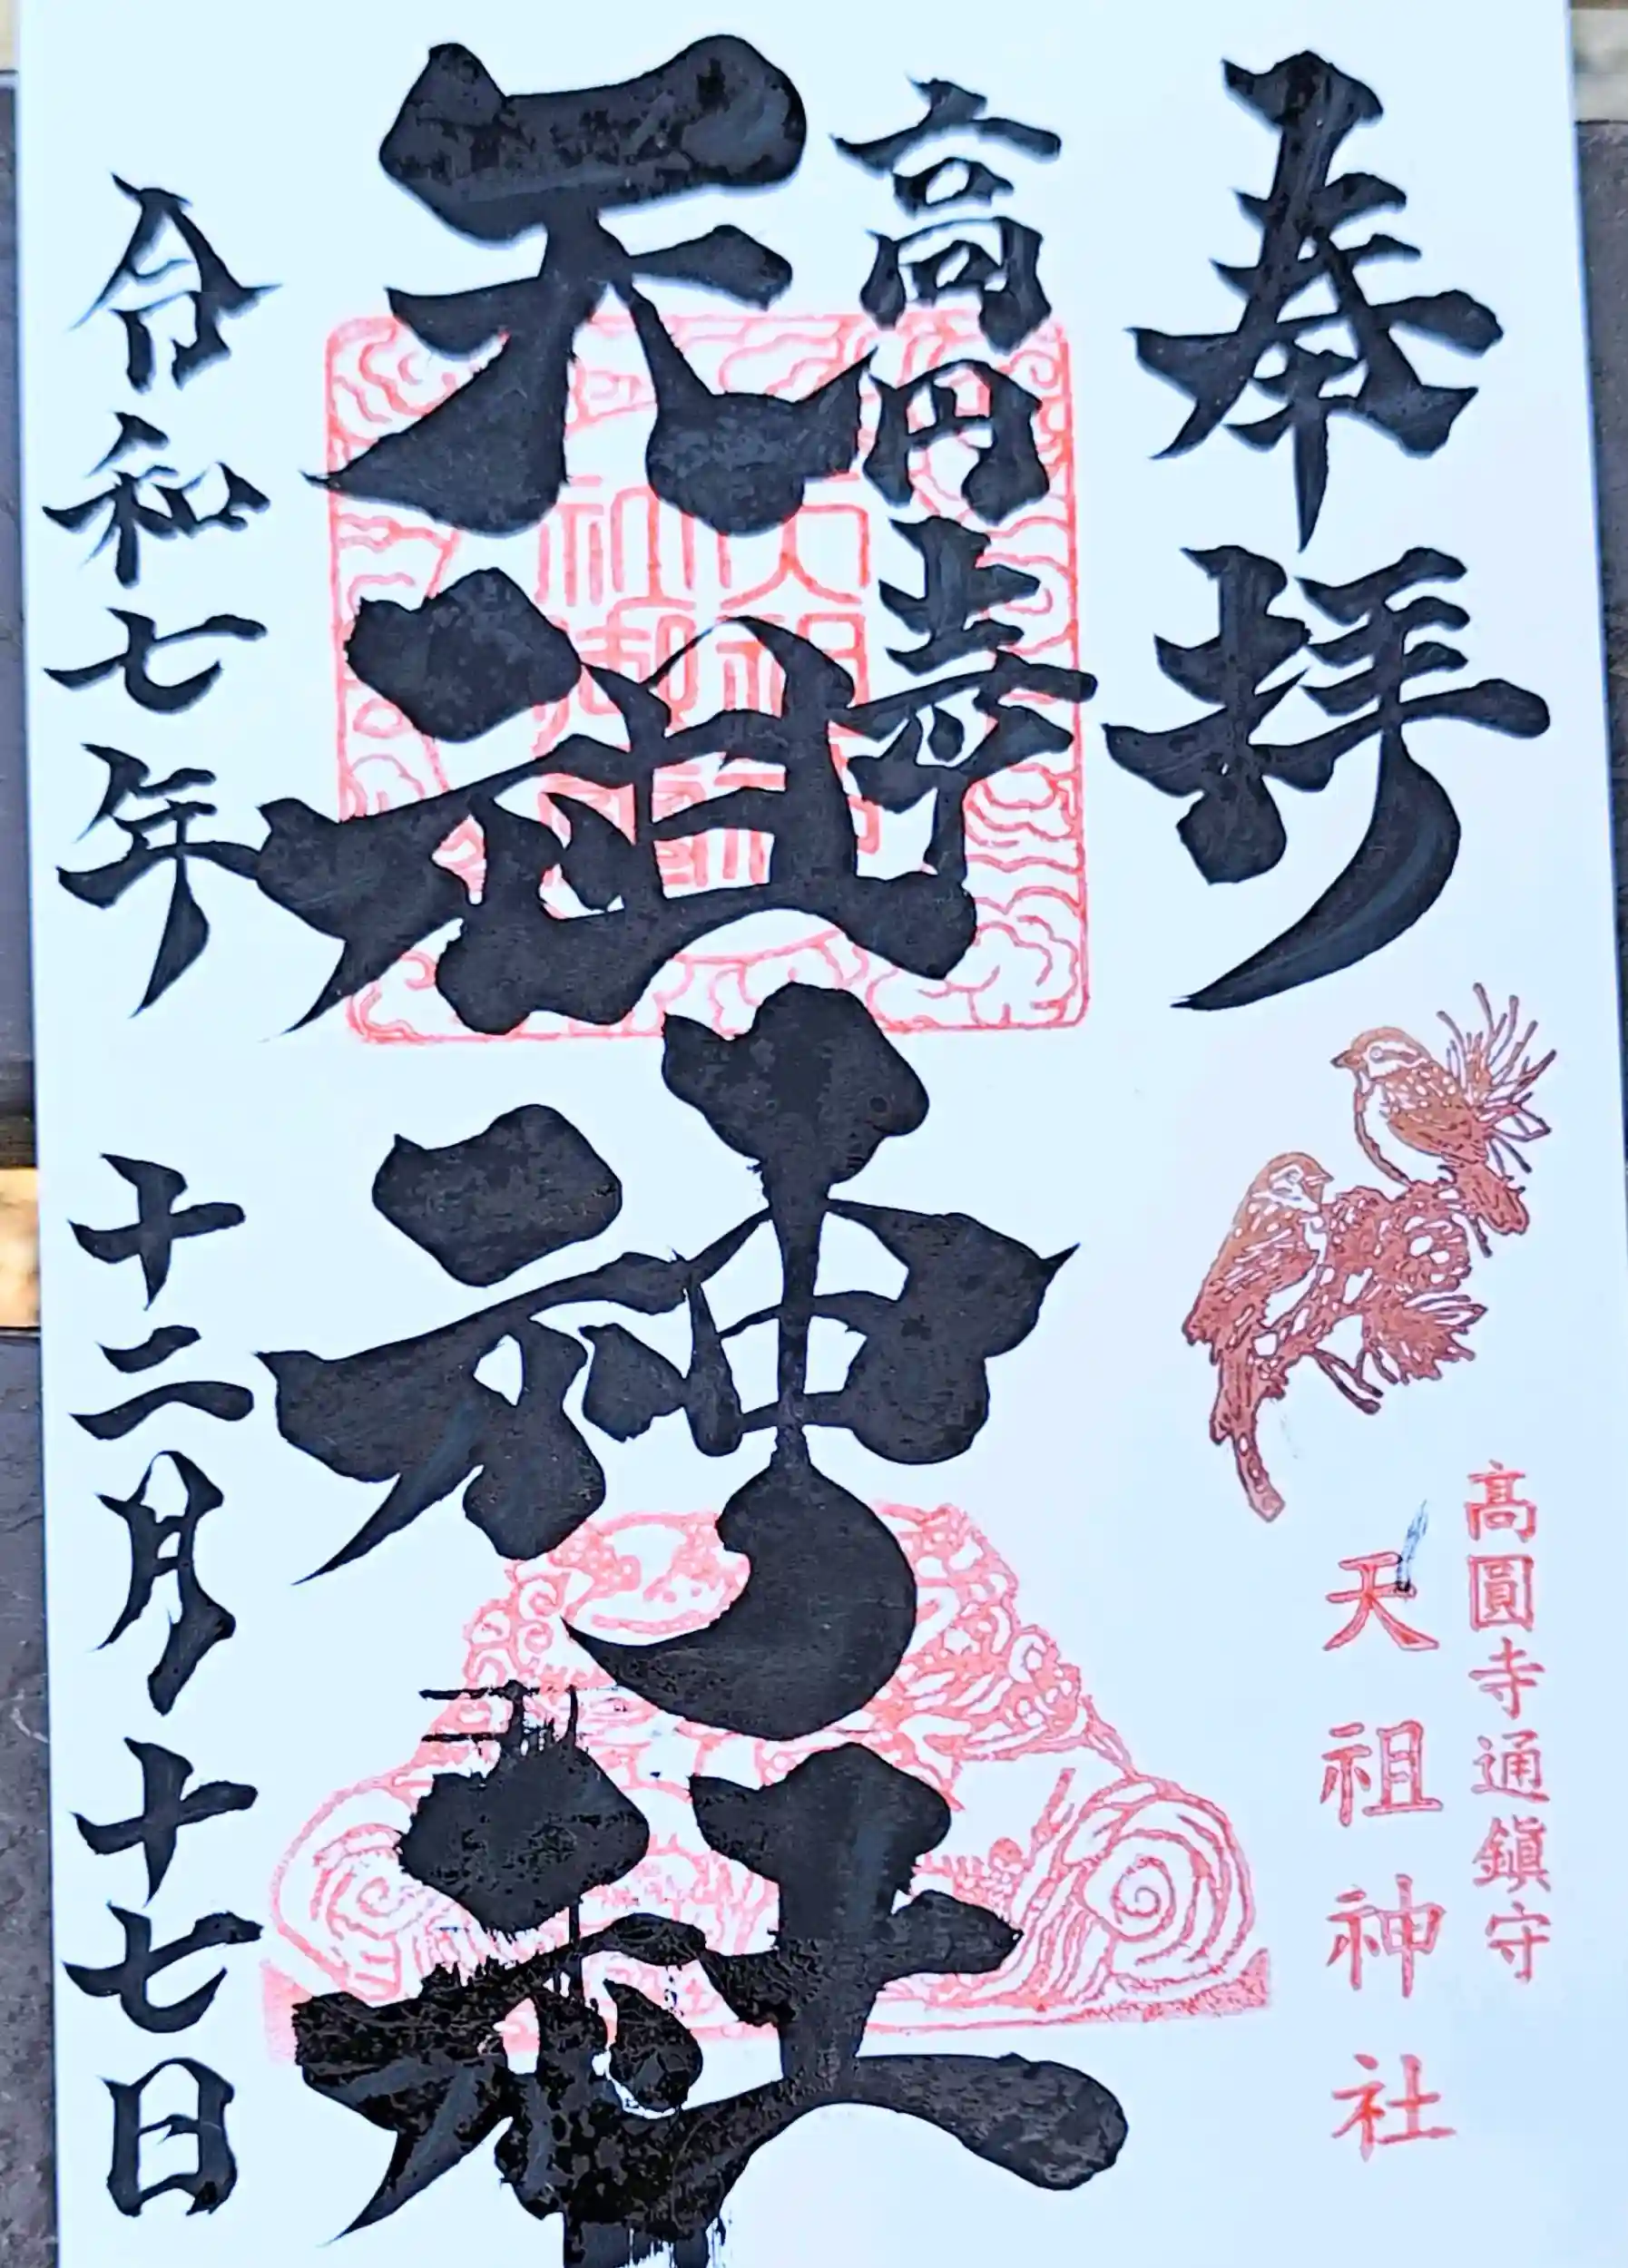 奉拝
高圓寺通鎮守
天祖神社
高円寺
天祖神社
令和七年十二月十七日